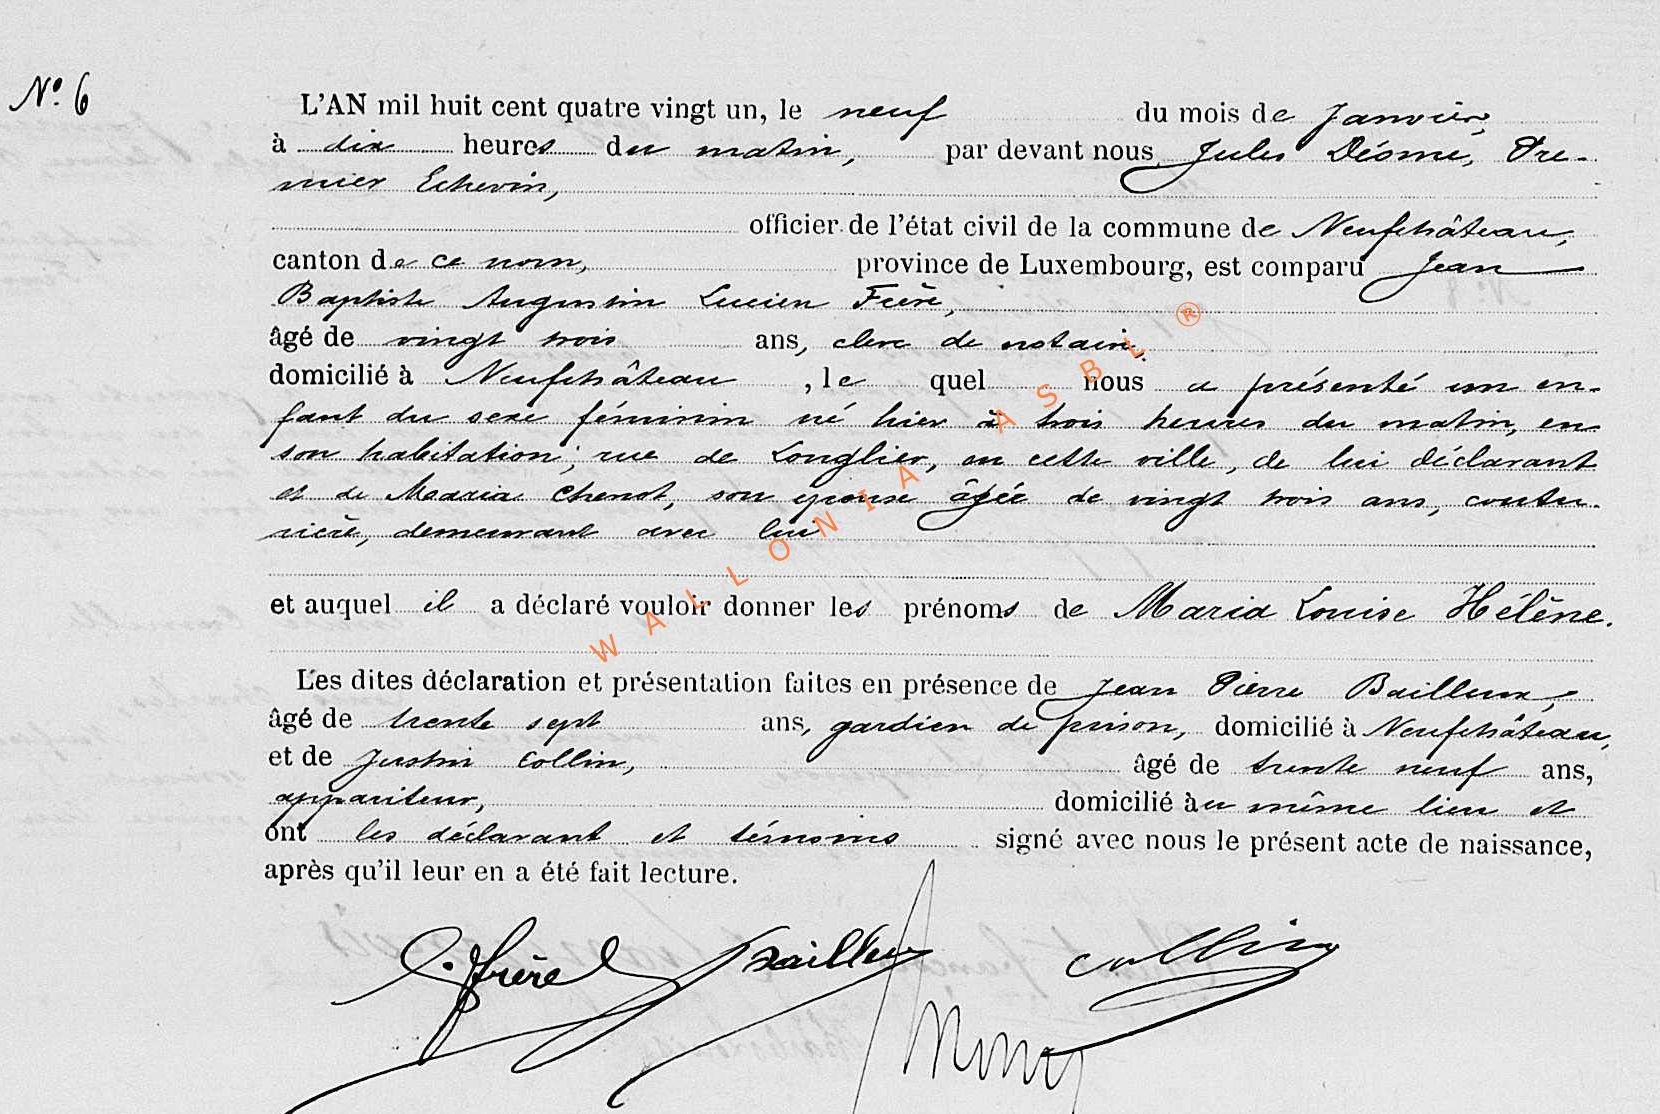 N° 6
L'AN mil huit cent quatre vingt un, le neuf du mois de Janvier,
à dix heures du matin, par devant nous Jules Désomé, Pre-
mier Echevin,
officier de l'état civil de la commune de Neufchâteau,
canton de ce nom, province de Luxembourg, est comparu Jean
Baptiste Augustin Lucien Frère,
âgé de vingt trois ans, clerc de notaire,
domicilié à Neufchâteau, le quel nous a présenté un en-
fant du sexe féminin né hier à trois heures du matin, en
son habitation, rue de Longlier, en cette ville, de lui déclarant
et de Maria Chenot, son epouse âgée de vingt trois ans, coutu-
rière, demeurant avec lui
et auquel il a déclaré vouloir donner les prénoms de Maria Louise Hélène.
Les dites déclaration et présentation faites en présence de Jean Pierre Bailleux,
âgé de trente sept ans, gardien de prison, domicilié à Neufchâteau,
et de Justin Collin, âgé de trente neuf ans,
appariteur, domicilié au même lieu et
ont les déclarant et témoins signé avec nous le présent acte de naissance,
après qu'il leur en a été fait lecture.
L. frère Bailleux Collin
WALLONIA ASBL ®